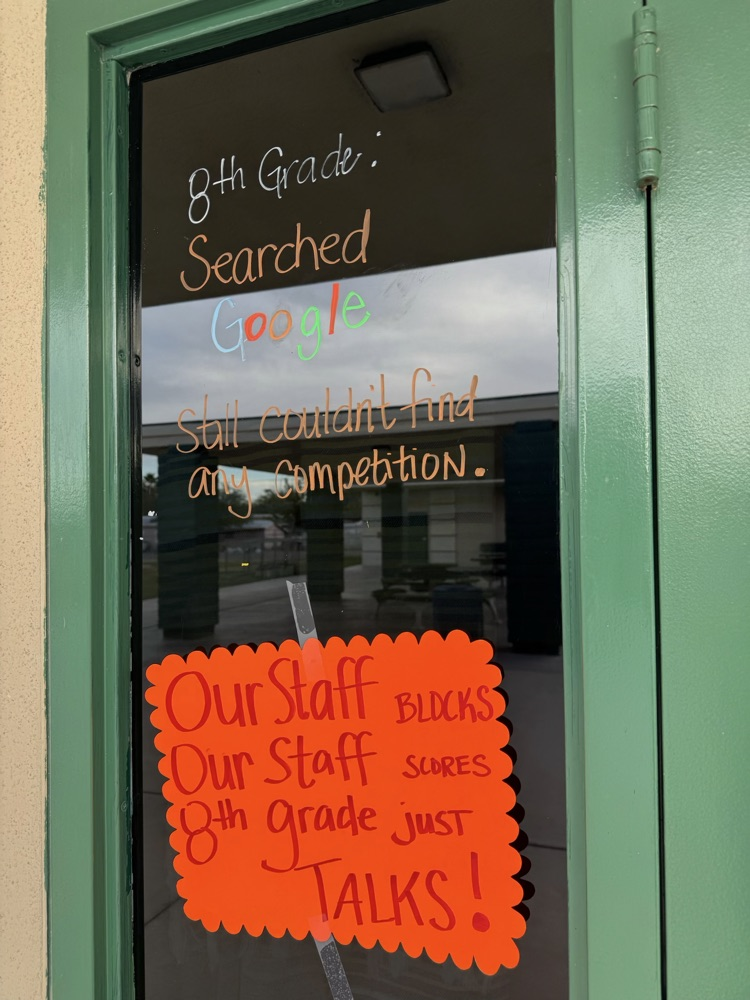 8th Grade:
Searched
Google
Still couldn't find
any competition.
Our Staff BLOCKS
Our Staff SCORES
8th grade just
TALKS!